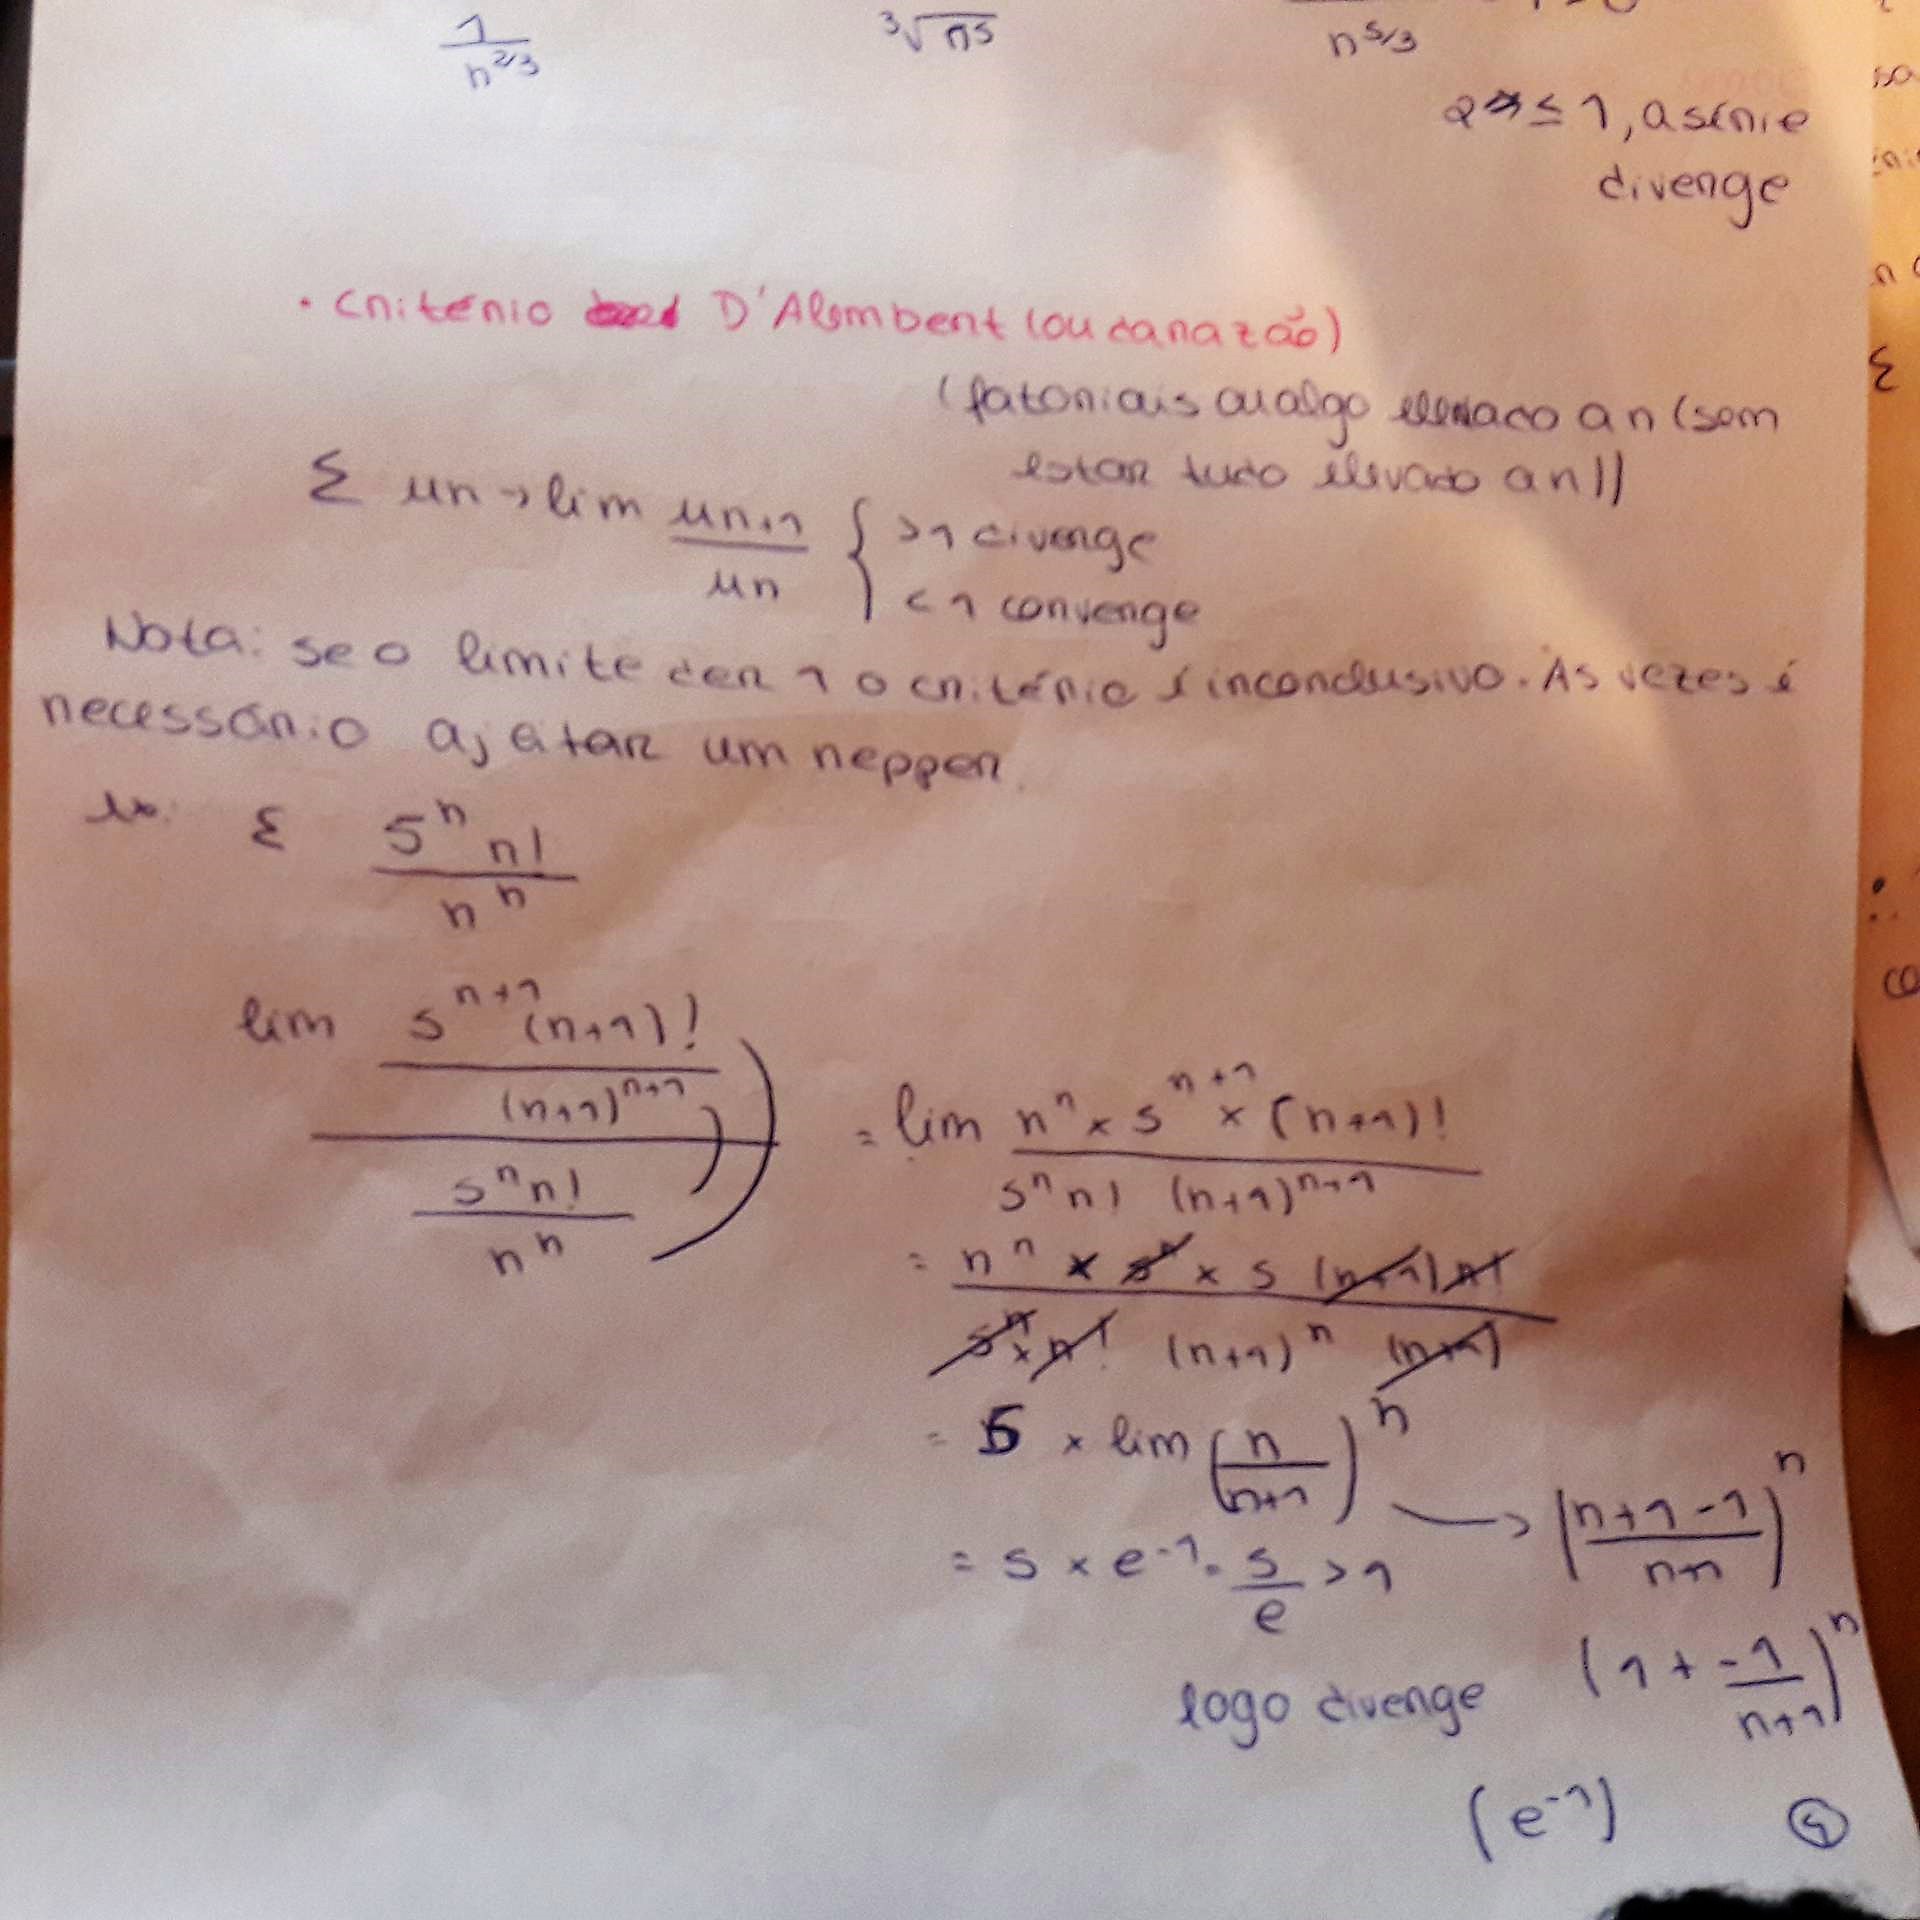 1/n^2/3
³√n5
n^5/3
2 ≤ 1, a série
diverge
• critério D'Alembert (ou da razão)
(fatoriais ou algo elevado a n (sem
estar tudo elevado a n))
Σ un → lim un+1/un { >1 diverge
<1 converge
Nota: se o limite der 1 o critério é inconclusivo. As vezes é
necessário ajeitar um nepper.
ex: Σ 5^n n!/n^n
lim (5^n+1 (n+1)!/(n+1)^n+1)/(5^n n!/n^n)
= lim n^n × 5^n+1 × (n+1)!/5^n n! (n+1)^n+1
= n^n × 5^n × 5 (n+1) n!/5^n × n! (n+1)^n (n+1)
= 5 × lim (n/n+1)^n → (n+1-1/n+1)^n
= 5 × e^-1 = 5/e > 1
(1 + -1/n+1)^n
logo diverge
(e^-1)